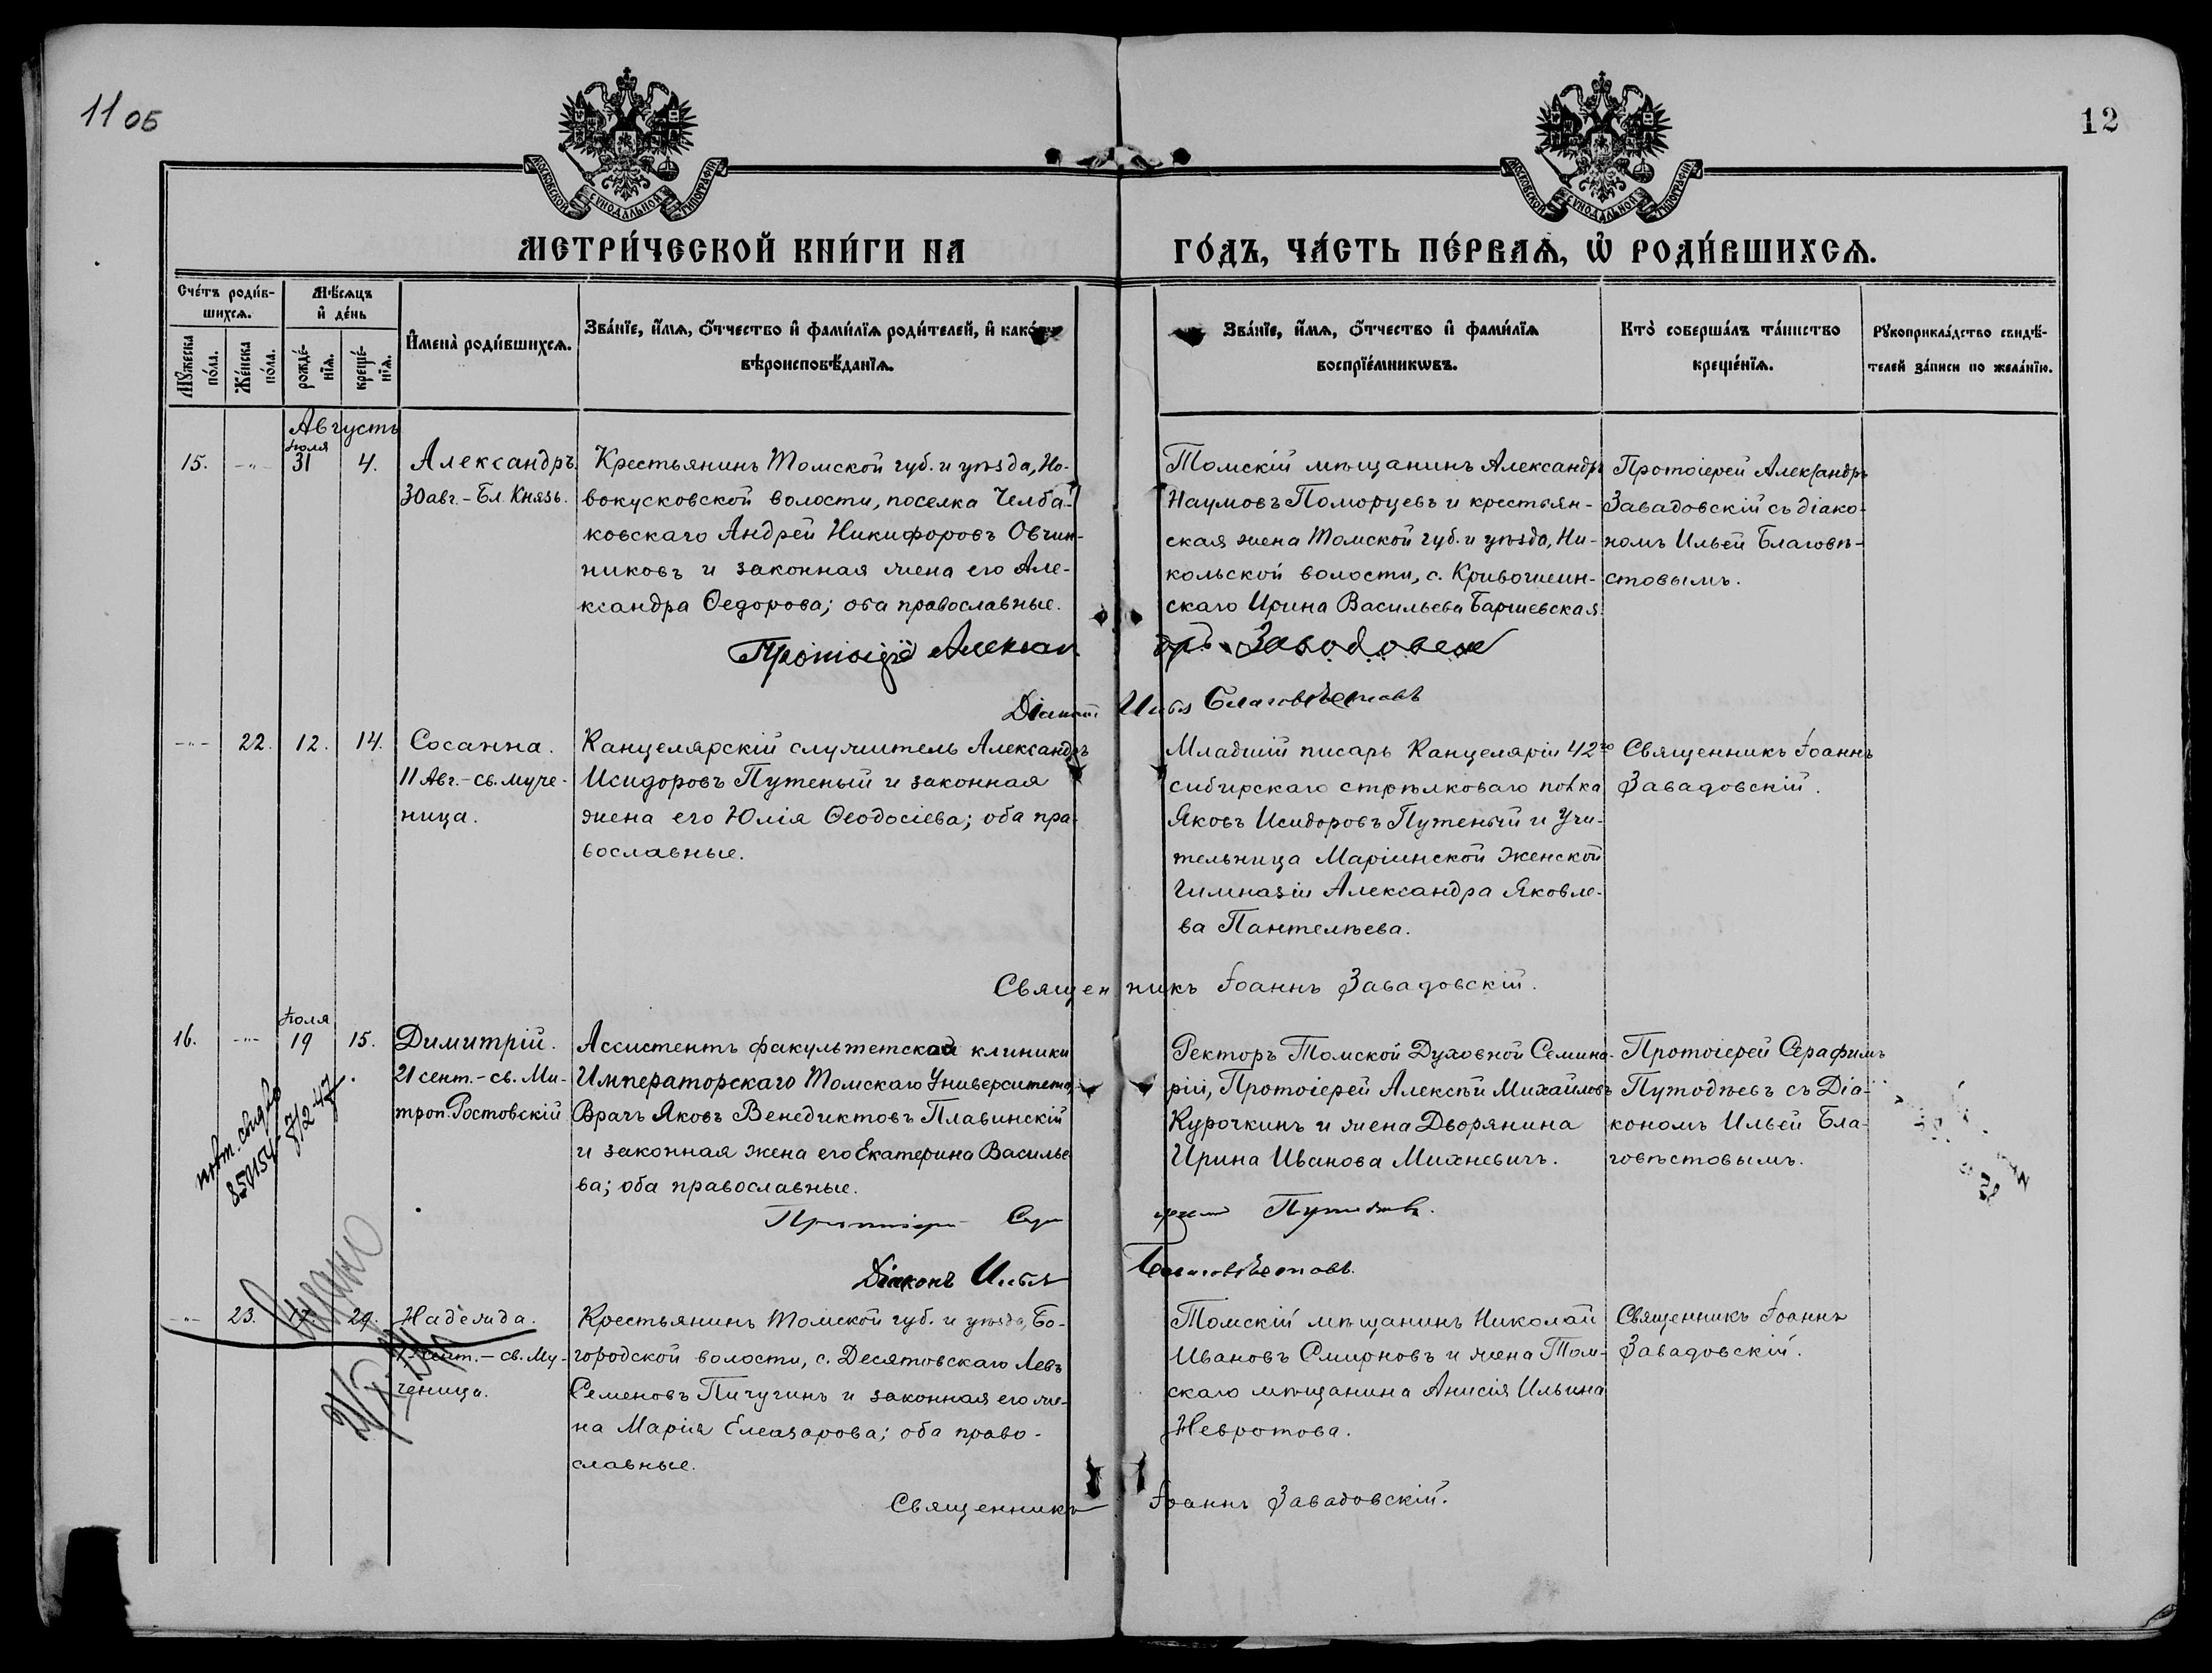 11 об
12
МОСКОВСКОЙ СѴНОДАЛЬНОЙ ТИПОГРАФІИ
МОСКОВСКОЙ СѴНОДАЛЬНОЙ ТИПОГРАФІИ
МЕТРИ́ЧЕСКОЙ КНИ́ГИ НА
ГО́ДЪ, ЧА́СТЬ ПЕ́РВАѦ, Ѡ҆ РОДИ́ВШИХСѦ.
Сче́тъ роди́в-
шихсѧ.
Мꙋ́жеска
по́ла.
Же́нска
по́ла.
Мѣ́сѧцъ
и҆ де́нь
рожде́-
нїѧ.
креще́-
нїѧ.
И҆мена̀ роди́вшихсѧ.
Зва́нїе, и҆́мѧ, ѻ҆́тчество и҆ фами́лїѧ роди́телей, и҆ како́гѡ
вѣроисповѣ́данїѧ.
Зва́нїе, и҆́мѧ, ѻ҆́тчество и҆ фами́лїѧ
воспрїе́мникѡвъ.
Кто̀ соверша́лъ та́инство
креще́нїѧ.
Рꙋкоприкла́дство свидѣ́-
телей за́писи по жела́нїю.
Августъ
Іюля
15.
-"-
31
4.
Александръ.
30 авг. - Бл. Князь.
Крестьянинъ Томской губ. и уѣзда, Но-
вокусковской волости, поселка Челба-
ковскаго Андрей Никифоровъ Овчин-
никовъ и законная жена его Але-
ксандра Ѳедорова; оба православные.
Томскій мѣщанинъ Александръ
Наумовъ Поморцевъ и крестьян-
ская жена Томской губ. и уѣзда, Ни-
кольской волости, с. Кривошеин-
скаго Ирина Васильева Баршевская.
Протоіерей Александръ
Завадовскій съ діако-
номъ Ильей Благовѣ-
стовымъ.
Протоіерей Александръ Завадовскій
Діаконъ Илья Благовѣстовъ
-"-
22.
12.
14.
Сосанна.
11 Авг. - св. муче-
ница.
Канцелярскій служитель Александръ
Исидоровъ Путеный и законная
жена его Юлія Ѳеодосіева; оба пра-
вославные.
Младшій писарь Канцеляріи 42го
сибирскаго стрѣлковаго полка
Яковъ Исидоровъ Путеный и Учи-
тельница Маріинской Женской
Гимназіи Александра Яковле-
ва Пантелѣева.
Священникъ Іоаннъ
Завадовскій.
Священникъ Іоаннъ Завадовскій.
Іюля
16.
-"-
19
15.
Димитрій.
21 сент. - св. Ми-
троп. Ростовскій
Ассистентъ факультетской клиники
Императорскаго Томскаго Университета,
Врачъ Яковъ Венедиктовъ Плавинскій
и законная жена его Екатерина Василье-
ва; оба православные.
Ректоръ Томской Духовной Семина-
ріи, Протоіерей Алексѣй Михайловъ
Курочкинъ и жена Дворянина
Ирина Иванова Михневичъ.
Протоіерей Серафимъ
Путодѣевъ съ Діа-
кономъ Ильей Бла-
говѣстовымъ.
Протоіерей Серафимъ Путодѣевъ.
Діаконъ Илья Благовѣстовъ.
-"-
23.
17.
29.
Надежда.
17 сент. - св. Му-
ченица.
Крестьянинъ Томской губ. и уѣзда, Бо-
городской волости, с. Десятовскаго Левъ
Семеновъ Пичугинъ и законная его же-
на Марія Елеазарова; оба право-
славные.
Томскій мѣщанинъ Николай
Ивановъ Смирновъ и жена Том-
скаго мѣщанина Анисія Ильина
Невротова.
Священникъ Іоаннъ
Завадовскій.
Священникъ Іоаннъ Завадовскій.